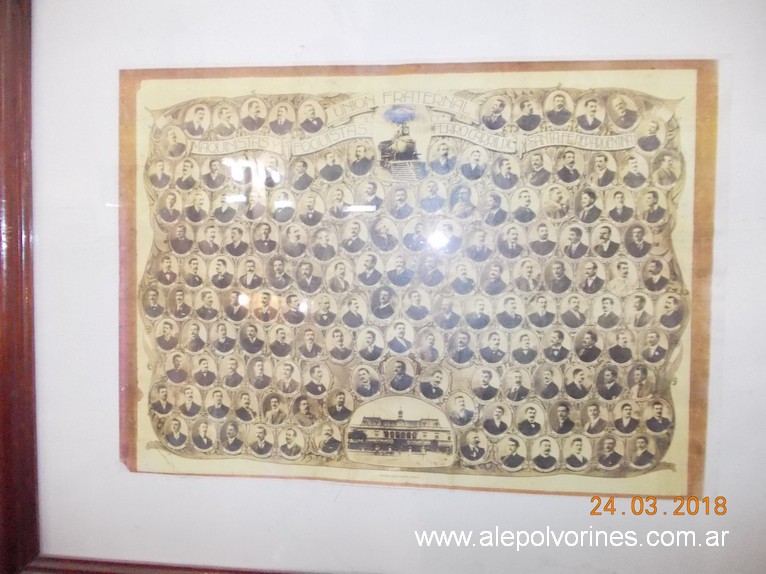 UNION FRATERNAL
MAQUINISTAS Y FOGUISTAS FERROCARRIL DE
24.03.2018
www.alepolvorines.com.ar